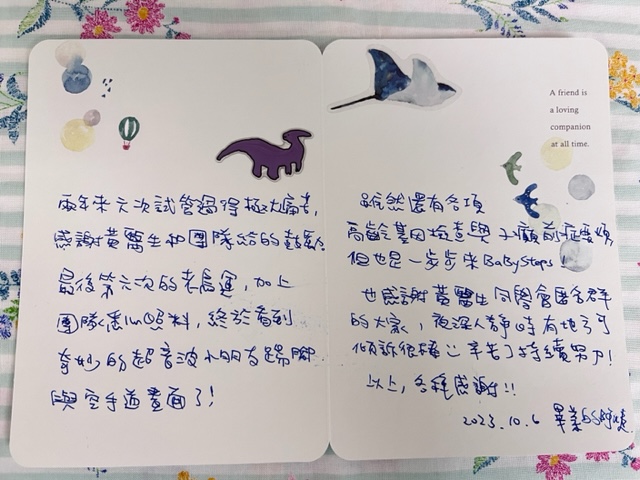 兩年來六次試管過得極大痛苦,
感謝黃醫生和團隊給的鼓勵
最後第六次的老處運,加上
團隊悉心照料,終於看到
奇妙的超音波小朋友踢腳
與空手道畫面了!
A friend is
a loving
companion
at all time.
雖然還有各項
高齡基因檢查與子癲前症要煩
但也是一步步來BabySteps!
也感謝黃醫生同學會匿名群
的大家,夜深人靜時有地方可
傾訴很棒:) 辛苦了持續努力!
以上,各種感謝!!
2023.10.6 畢業的S阿